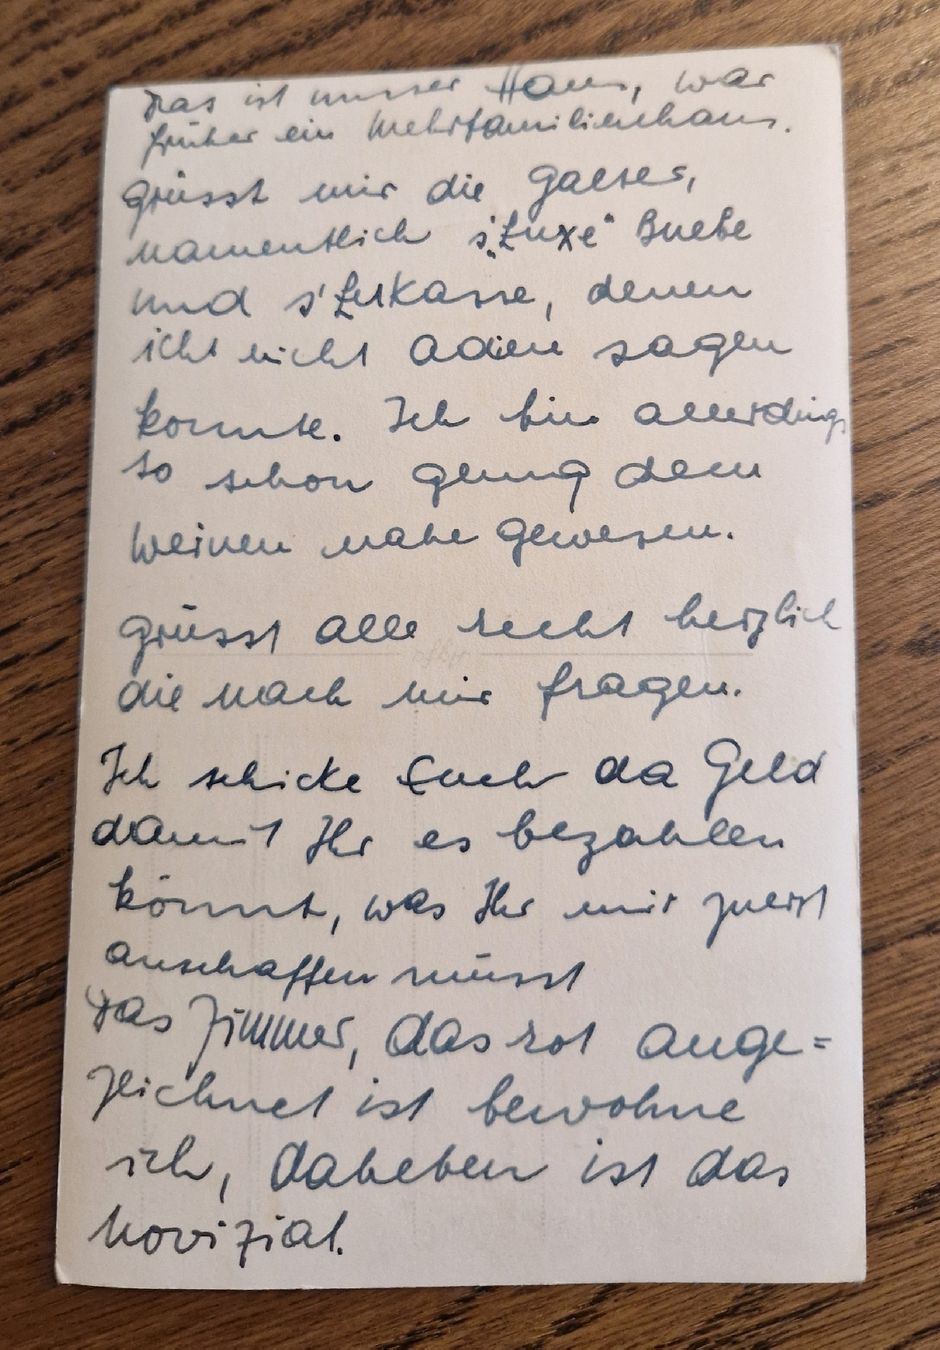 Das ist unser Haus, war
früher ein Mehrfamilienhaus.
Grüsst mir die
namentlich s'„Luxe" Buebe
und s'Lukasse, denen
ich nicht adieu sagen
konnte. Ich bin allerdings
so schon genug dem
weinen nahe gewesen.
Grüsst alle recht herzlich
die nach mir fragen.
Ich schicke Euch da Geld
damit Ihr es bezahlen
könnt, was Ihr mir zuerst
anschaffen müsst
Das Zimmer, das rot ange=
zeichnet ist bewohne
ich, daheben ist das
Noviziat.